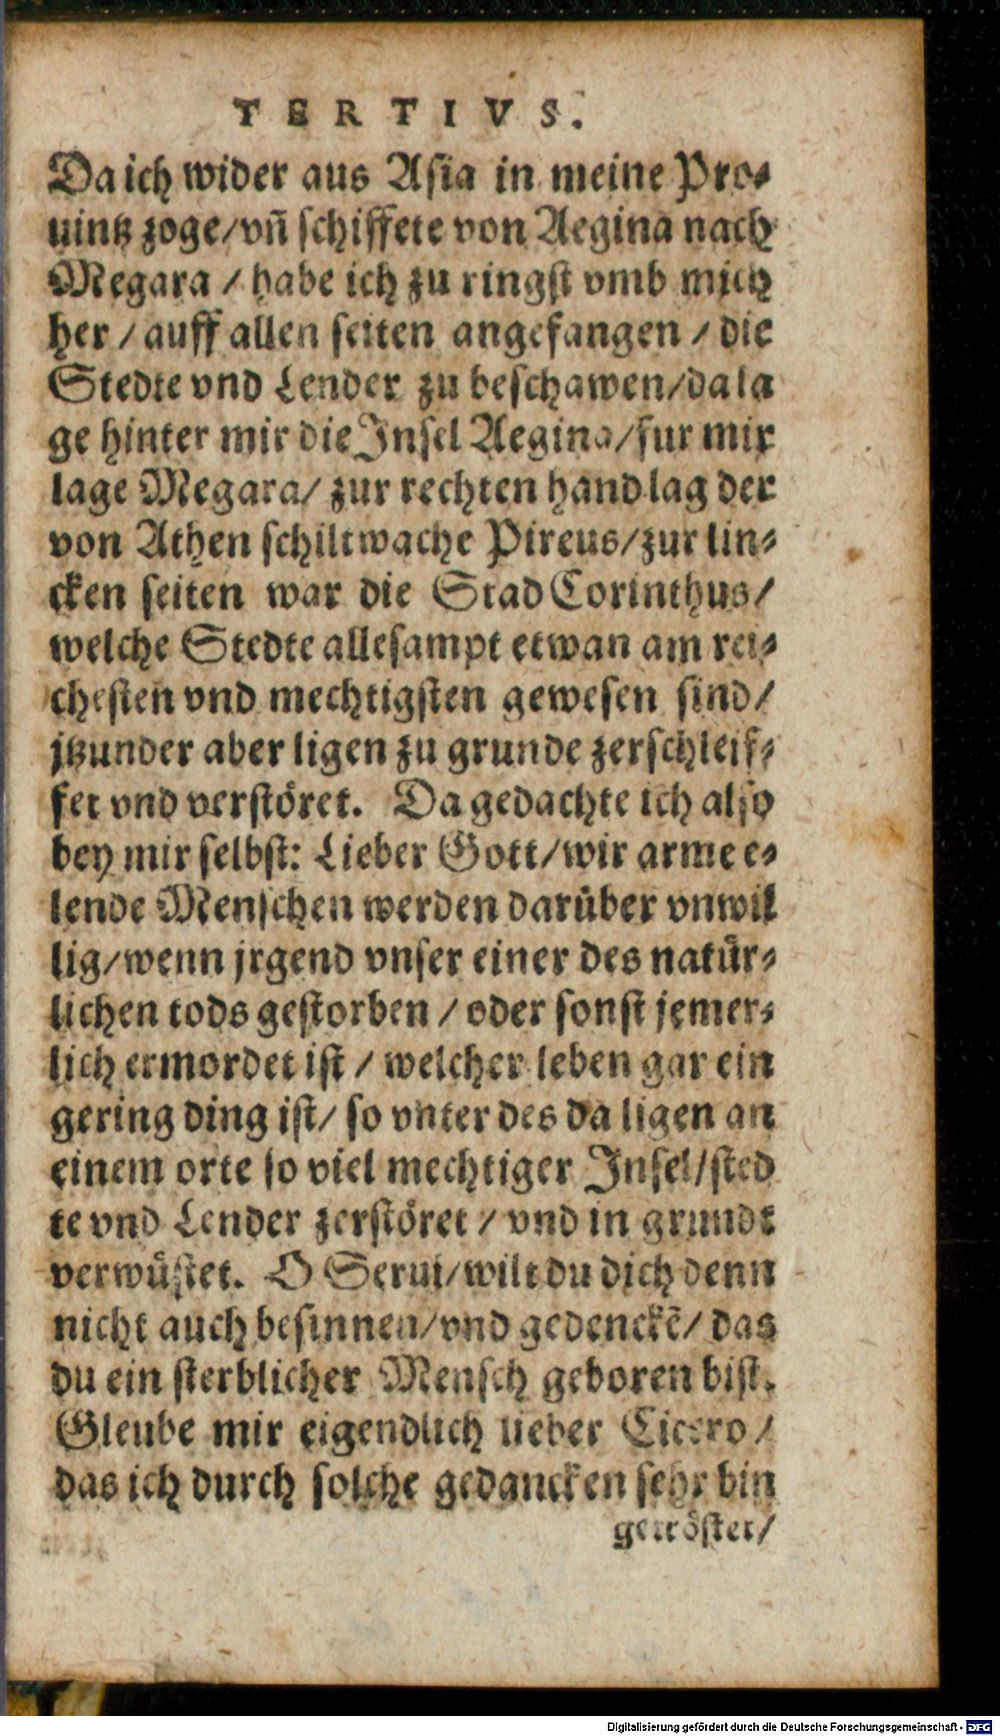 TERTIVS.
Da ich wider aus Asia in meine Pro-
uintz zoge/vnd̄ schiffete von Aegina nach
Megara / habe ich zu ringst vmb mich
her / auff allen seiten angefangen / die
Stedte vnd Lender zu beschawen/da la
ge hinter mir die Insel Aegina/fur mir
lage Megara/ zur rechten hand lag der
von Athen schiltwache Pireus/zur lin-
cken seiten war die Stad Corinthus/
welche Stedte allesampt etwan am rei-
chesten vnd mechtigsten gewesen sind/
jtzunder aber ligen zu grunde zerschleif-
fet vnd verstöret. Da gedachte ich also
bey mir selbst: Lieber Gott/wir arme e-
lende Menschen werden darüber vnwil
lig/wenn jrgend vnser einer des natür-
lichen tods gestorben / oder sonst jemer-
lich ermordet ist / welcher leben gar ein
gering ding ist/ so vnter des da ligen an
einem orte so viel mechtiger Insel/sted
te vnd Lender zerstöret / vnd in grundt
verwüstet. O Serui/wilt du dich denn
nicht auch besinnen/vnd gedenckē/ das
du ein sterblicher Mensch geboren bist.
Gleube mir eigendlich lieber Cicero /
das ich durch solche gedancken sehr bin
getröstet/
Digitalisierung gefördert durch die Deutsche Forschungsgemeinschaft - DFG